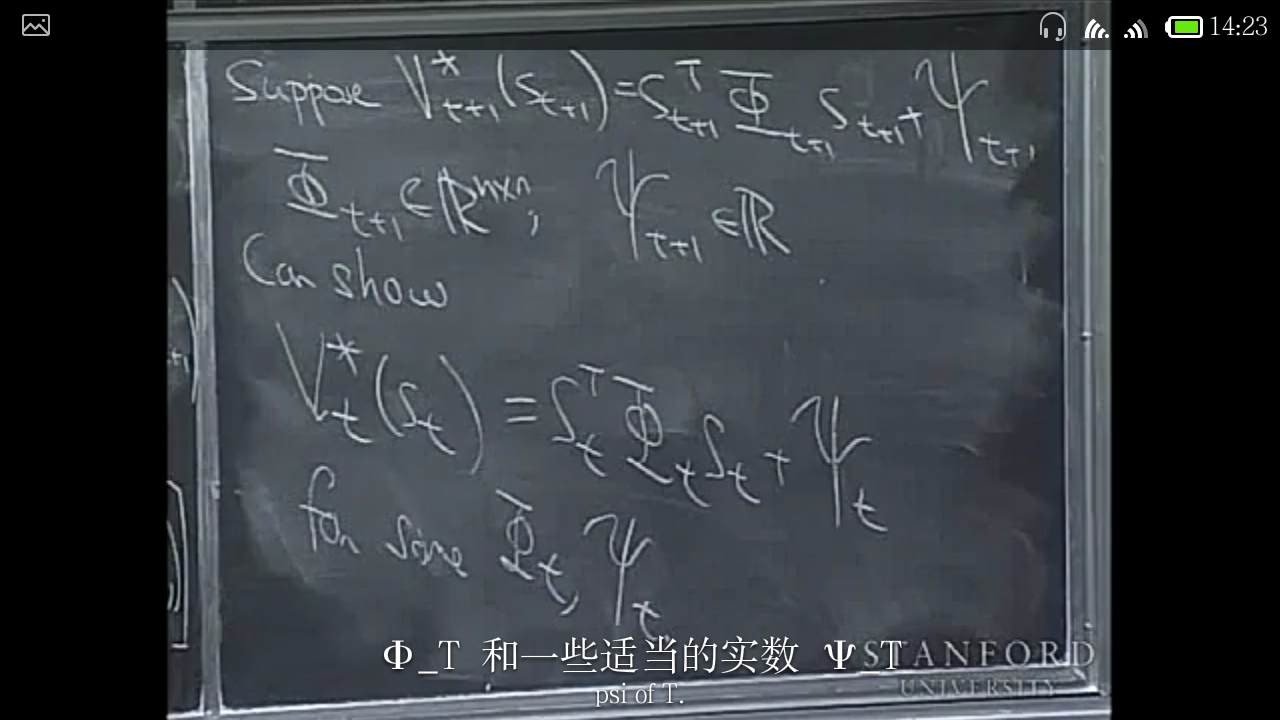 14:23
Suppose V*_{t+1}(s_{t+1}) = s_{t+1}^T Φ_{t+1} s_{t+1} + Ψ_{t+1}
Φ_{t+1} ∈ ℝ^{n×n}, Ψ_{t+1} ∈ ℝ
Can show
V*_t(s_t) = s_t^T Φ_t s_t + Ψ_t
for some Φ_t, Ψ_t
Φ_T 和一些适当的实数 Ψ_T
psi of T.
STANFORD
UNIVERSITY